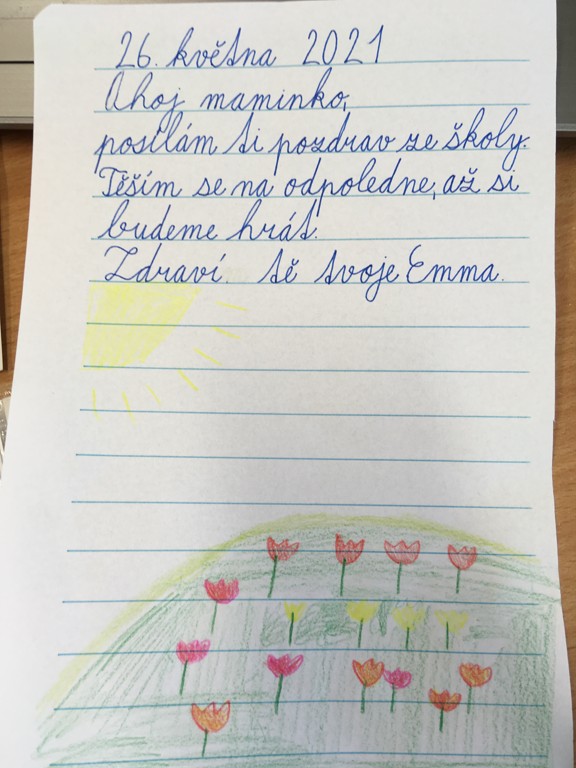 26. května 2021
Ahoj maminko,
posílám ti pozdrav ze školy.
Těším se na odpoledne, až si
budeme hrát.
Zdraví. tě tvoje Emma.